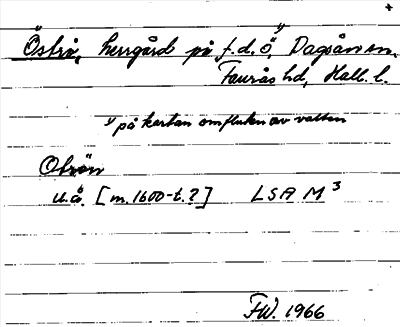 +
Östrå, herrgård på f.d. ö,¹⁾ Dagsås sn.
Faurås hd, Hall. l.
¹⁾ på kartan omfluten av vatten
Obrön
u.å. [m. 1600-t.?] LSA M³
FW. 1966